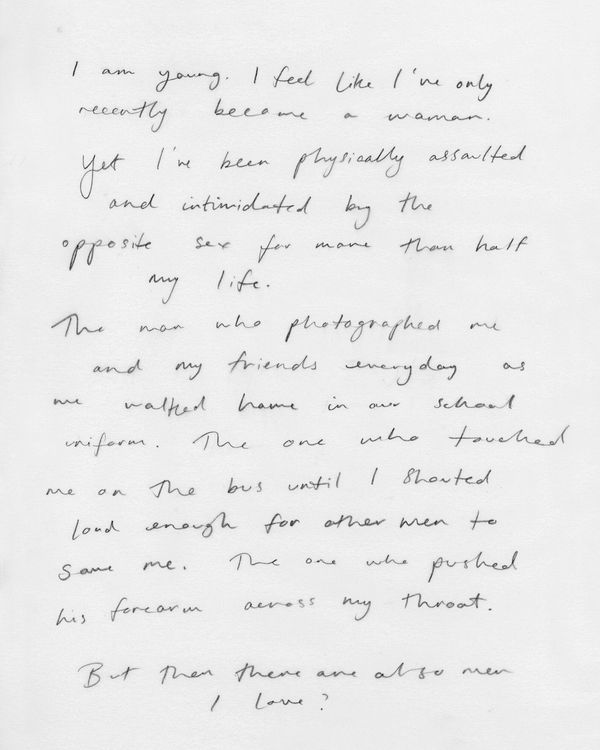 I am young. I feel like I've only
recently became a woman.
Yet I've been physically assaulted
and intimidated by the
opposite sex for more than half
my life.
The man who photographed me
and my friends everyday as
we walked home in our school
uniform. The one who touched
me on the bus until I shouted
loud enough for other men to
save me. The one who pushed
his forearm across my throat.
But then there are also men
I love?